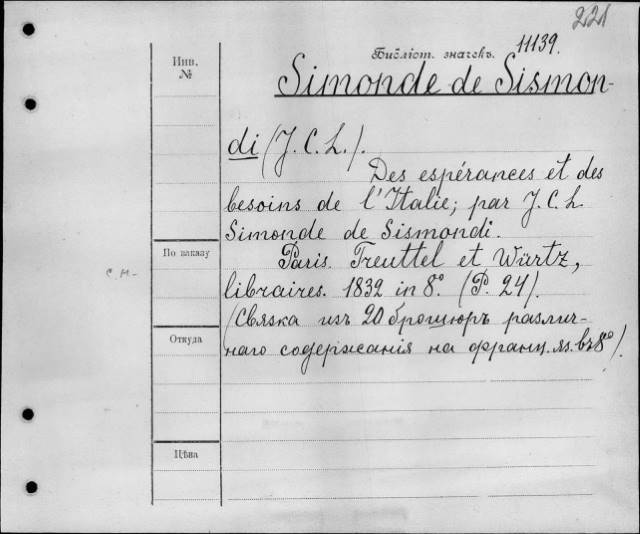 221
Инв.
№
Библіот. значекъ. 11139.
Simonde de Sismon-
di (J. C. L.).
Des espérances et des
besoins de l'Italie; par J. C. L
Simonde de Sismondi.
По заказу
Paris. Treuttel et Würtz,
с. н.-
libraires. 1832 in 8°. (P. 24).
(Связка изъ 20 брошюръ различ-
Откуда
наго содержанія на франц. яз. въ 8°).
Цѣна